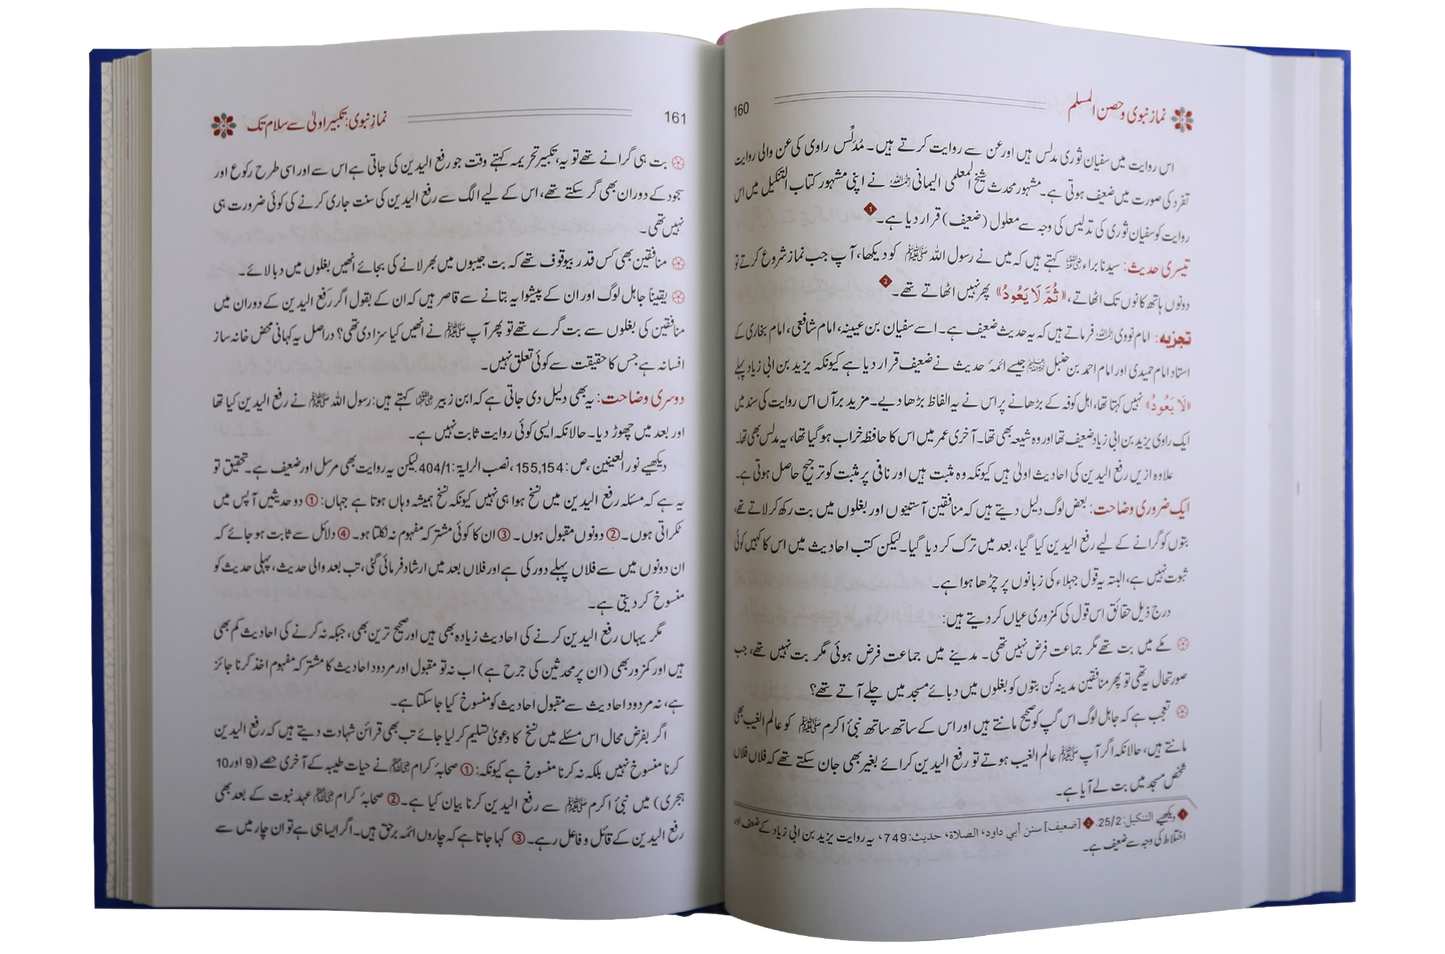 نماز نبوی و حصن المسلم
160
اس روایت میں سفیان ثوری مدلس ہیں اور عن سے روایت کرتے ہیں۔ مُدَلِّس راوی کی عن والی روایت
تفرد کی صورت میں ضعیف ہوتی ہے۔ مشہور محدث شیخ المعلمی الیمانی رحمہ اللہ نے اپنی مشہور کتاب التنکیل میں اس
روایت کو سفیان ثوری کی تدلیس کی وجہ سے معلول (ضعیف) قرار دیا ہے۔ 1
تیسری حدیث: سیدنا براء رضی اللہ عنہ کہتے ہیں کہ میں نے رسول اللہ ﷺ کو دیکھا، آپ جب نماز شروع کرتے تو
دونوں ہاتھ کانوں تک اٹھاتے، «ثُمَّ لَا یَعُودُ» پھر نہیں اٹھاتے تھے۔ 2
تجزیہ: امام نووی رحمہ اللہ فرماتے ہیں کہ یہ حدیث ضعیف ہے۔ اسے سفیان بن عیینہ، امام شافعی، امام بخاری کے
استاد امام حمیدی اور امام احمد بن حنبل جیسے ائمۂ حدیث نے ضعیف قرار دیا ہے کیونکہ یزید بن ابی زیاد پہلے
«لَا یَعُودُ» نہیں کہتا تھا، اہل کوفہ کے بڑھانے پر اس نے یہ الفاظ بڑھا دیے۔ مزید برآں اس روایت کی سند میں
ایک راوی یزید بن ابی زیاد ضعیف تھا اور وہ شیعہ بھی تھا۔ آخری عمر میں اس کا حافظہ خراب ہو گیا تھا، یہ مدلس بھی تھا۔
علاوہ ازیں رفع الیدین کی احادیث اولیٰ ہیں کیونکہ وہ مثبت ہیں اور نافی پر مثبت کو ترجیح حاصل ہوتی ہے۔
ایک ضروری وضاحت: بعض لوگ دلیل دیتے ہیں کہ منافقین آستینوں اور بغلوں میں بت رکھ کر لاتے تھے،
بتوں کو گرانے کے لیے رفع الیدین کیا گیا، بعد میں ترک کر دیا گیا۔ لیکن کتب احادیث میں اس کا کہیں کوئی
ثبوت نہیں ہے، البتہ یہ قول جہلاء کی زبانوں پر چڑھا ہوا ہے۔
درج ذیل حقائق اس قول کی کمزوری عیاں کر دیتے ہیں:
مکے میں بت تھے مگر جماعت فرض نہیں تھی۔ مدینے میں جماعت فرض ہوئی مگر بت نہیں تھے، جب
صورتحال یہ تھی تو پھر منافقین مدینہ کن بتوں کو بغلوں میں دبائے مسجد میں چلے آتے تھے؟
تعجب ہے کہ جاہل لوگ اس گپ کو صحیح مانتے ہیں اور اس کے ساتھ ساتھ نبیٔ اکرم ﷺ کو عالم الغیب بھی
مانتے ہیں، حالانکہ اگر آپ ﷺ عالم الغیب ہوتے تو رفع الیدین کرائے بغیر بھی جان سکتے تھے کہ فلاں فلاں
شخص مسجد میں بت لے آیا ہے۔
1 دیکھیے التنکیل: 25/2. 2 [ضعیف] سنن أبي داود، الصلاة، حدیث: 749، یہ روایت یزید بن ابی زیاد کے ضعف اور
اختلاط کی وجہ سے ضعیف ہے۔
نماز نبوی: تکبیر اولیٰ سے سلام تک
161
بت ہی گرانے تھے تو یہ، تکبیر تحریمہ کہتے وقت جو رفع الیدین کی جاتی ہے اس سے اور اسی طرح رکوع اور
سجود کے دوران بھی گر سکتے تھے، اس کے لیے الگ سے رفع الیدین کی سنت جاری کرنے کی کوئی ضرورت ہی
نہیں تھی۔
منافقین بھی کس قدر بیوقوف تھے کہ بت جیبوں میں بھر لانے کی بجائے انھیں بغلوں میں دبا لائے۔
یقیناً جاہل لوگ اور ان کے پیشوا یہ بتانے سے قاصر ہیں کہ ان کے بقول اگر رفع الیدین کے دوران میں
منافقین کی بغلوں سے بت گرے تھے تو پھر آپ ﷺ نے انھیں کیا سزا دی تھی؟ دراصل یہ کہانی محض خانہ ساز
افسانہ ہے جس کا حقیقت سے کوئی تعلق نہیں۔
دوسری وضاحت: یہ بھی دلیل دی جاتی ہے کہ ابن زبیر رضی اللہ عنہما کہتے ہیں: رسول اللہ ﷺ نے رفع الیدین کیا تھا
اور بعد میں چھوڑ دیا۔ حالانکہ ایسی کوئی روایت ثابت نہیں ہے۔
دیکھیے نور العینین، ص: 155,154، نصب الرایۃ: 404/1 لیکن یہ روایت بھی مرسل اور ضعیف ہے۔ تحقیق تو
یہ ہے کہ مسئلہ رفع الیدین میں نسخ ہوا ہی نہیں کیونکہ نسخ ہمیشہ وہاں ہوتا ہے جہاں: ① دو حدیثیں آپس میں
ٹکراتی ہوں۔ ② دونوں مقبول ہوں۔ ③ ان کا کوئی مشترکہ مفہوم نہ نکلتا ہو۔ ④ دلائل سے ثابت ہو جائے کہ
ان دونوں میں سے فلاں پہلے دور کی ہے اور فلاں بعد میں ارشاد فرمائی گئی، تب بعد والی حدیث، پہلی حدیث کو
منسوخ کر دیتی ہے۔
مگر یہاں رفع الیدین کرنے کی احادیث زیادہ بھی ہیں اور صحیح ترین بھی، جبکہ نہ کرنے کی احادیث کم بھی
ہیں اور کمزور بھی (ان پر محدثین کی جرح ہے) اب نہ تو مقبول اور مردود احادیث کا مشترکہ مفہوم اخذ کرنا جائز
ہے، نہ مردود احادیث سے مقبول احادیث کو منسوخ کیا جا سکتا ہے۔
اگر بفرض محال اس مسئلے میں نسخ کا دعویٰ تسلیم کر لیا جائے تب بھی قرائن شہادت دیتے ہیں کہ رفع الیدین
کرنا منسوخ نہیں بلکہ نہ کرنا منسوخ ہے کیونکہ: ① صحابۂ کرام رضی اللہ عنہم نے حیات طیبہ کے آخری حصے (9 اور 10
ہجری) میں نبیٔ اکرم ﷺ سے رفع الیدین کرنا بیان کیا ہے۔ ② صحابۂ کرام رضی اللہ عنہم عہد نبوت کے بعد بھی
رفع الیدین کے قائل و فاعل رہے۔ ③ کہا جاتا ہے کہ چاروں ائمہ برحق ہیں۔ اگر ایسا ہی ہے تو ان چار میں سے